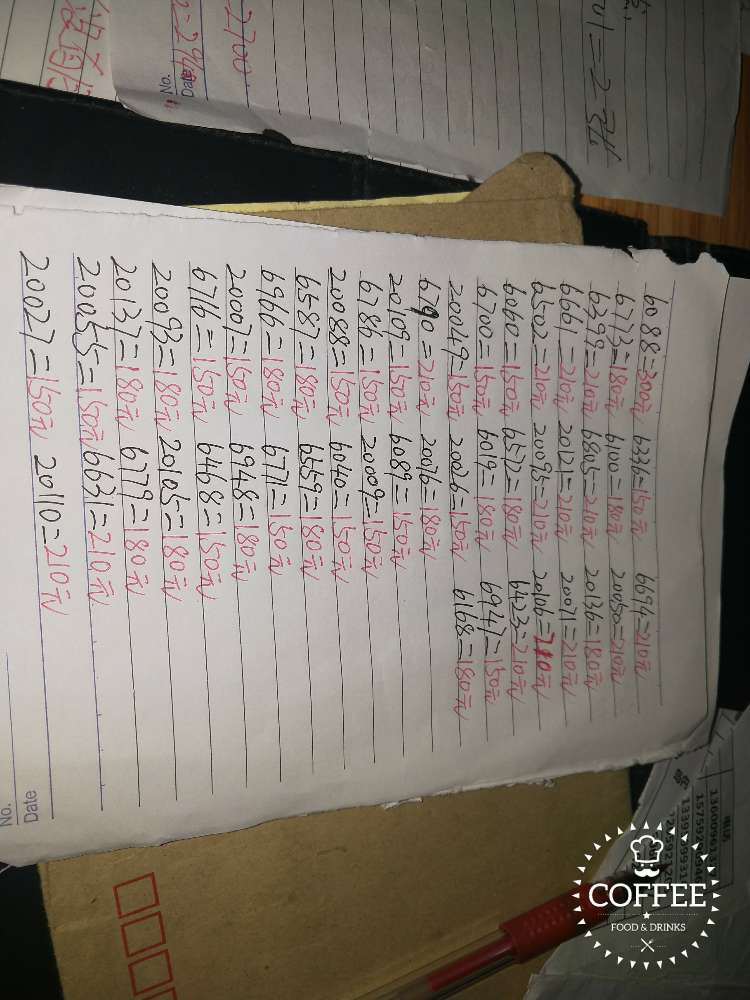 6088=300元 6336=150元 6694=210元
6773=180元 6100=180元 20050=210元
6399=210元 6805=210元 20136=180元
6661=210元 20121=210元 20071=210元
6502=210元 20095=210元 20106=210元
6060=150元 6572=180元 6423=210元
6700=150元 6019=180元 6947=150元
20049=150元 20026=150元 6168=180元
6790=210元 20076=180元
20109=150元 6089=150元
6786=150元 20009=150元
20088=150元 6040=150元
6587=180元 6459=180元
6966=180元 6771=150元
20007=150元 6948=180元
6716=150元 6468=150元
20093=180元 20105=180元
20137=180元 6779=180元
20055=150元 6631=210元
20027=150元 20110=210元
No.
Date
No.
Date
2700
COFFEE
FOOD & DRINKS